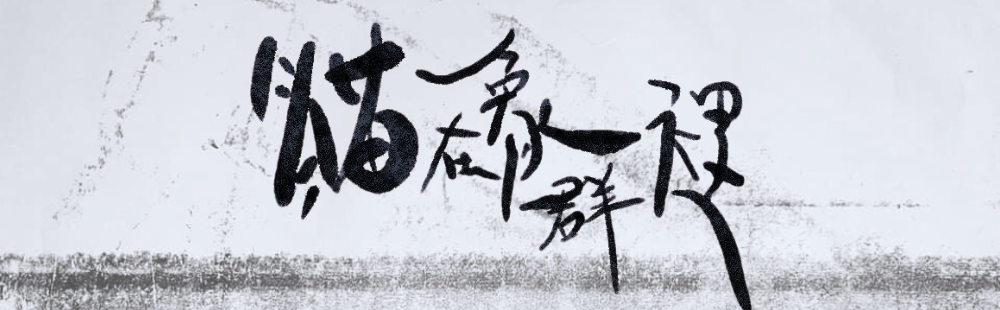 貓在象群裡